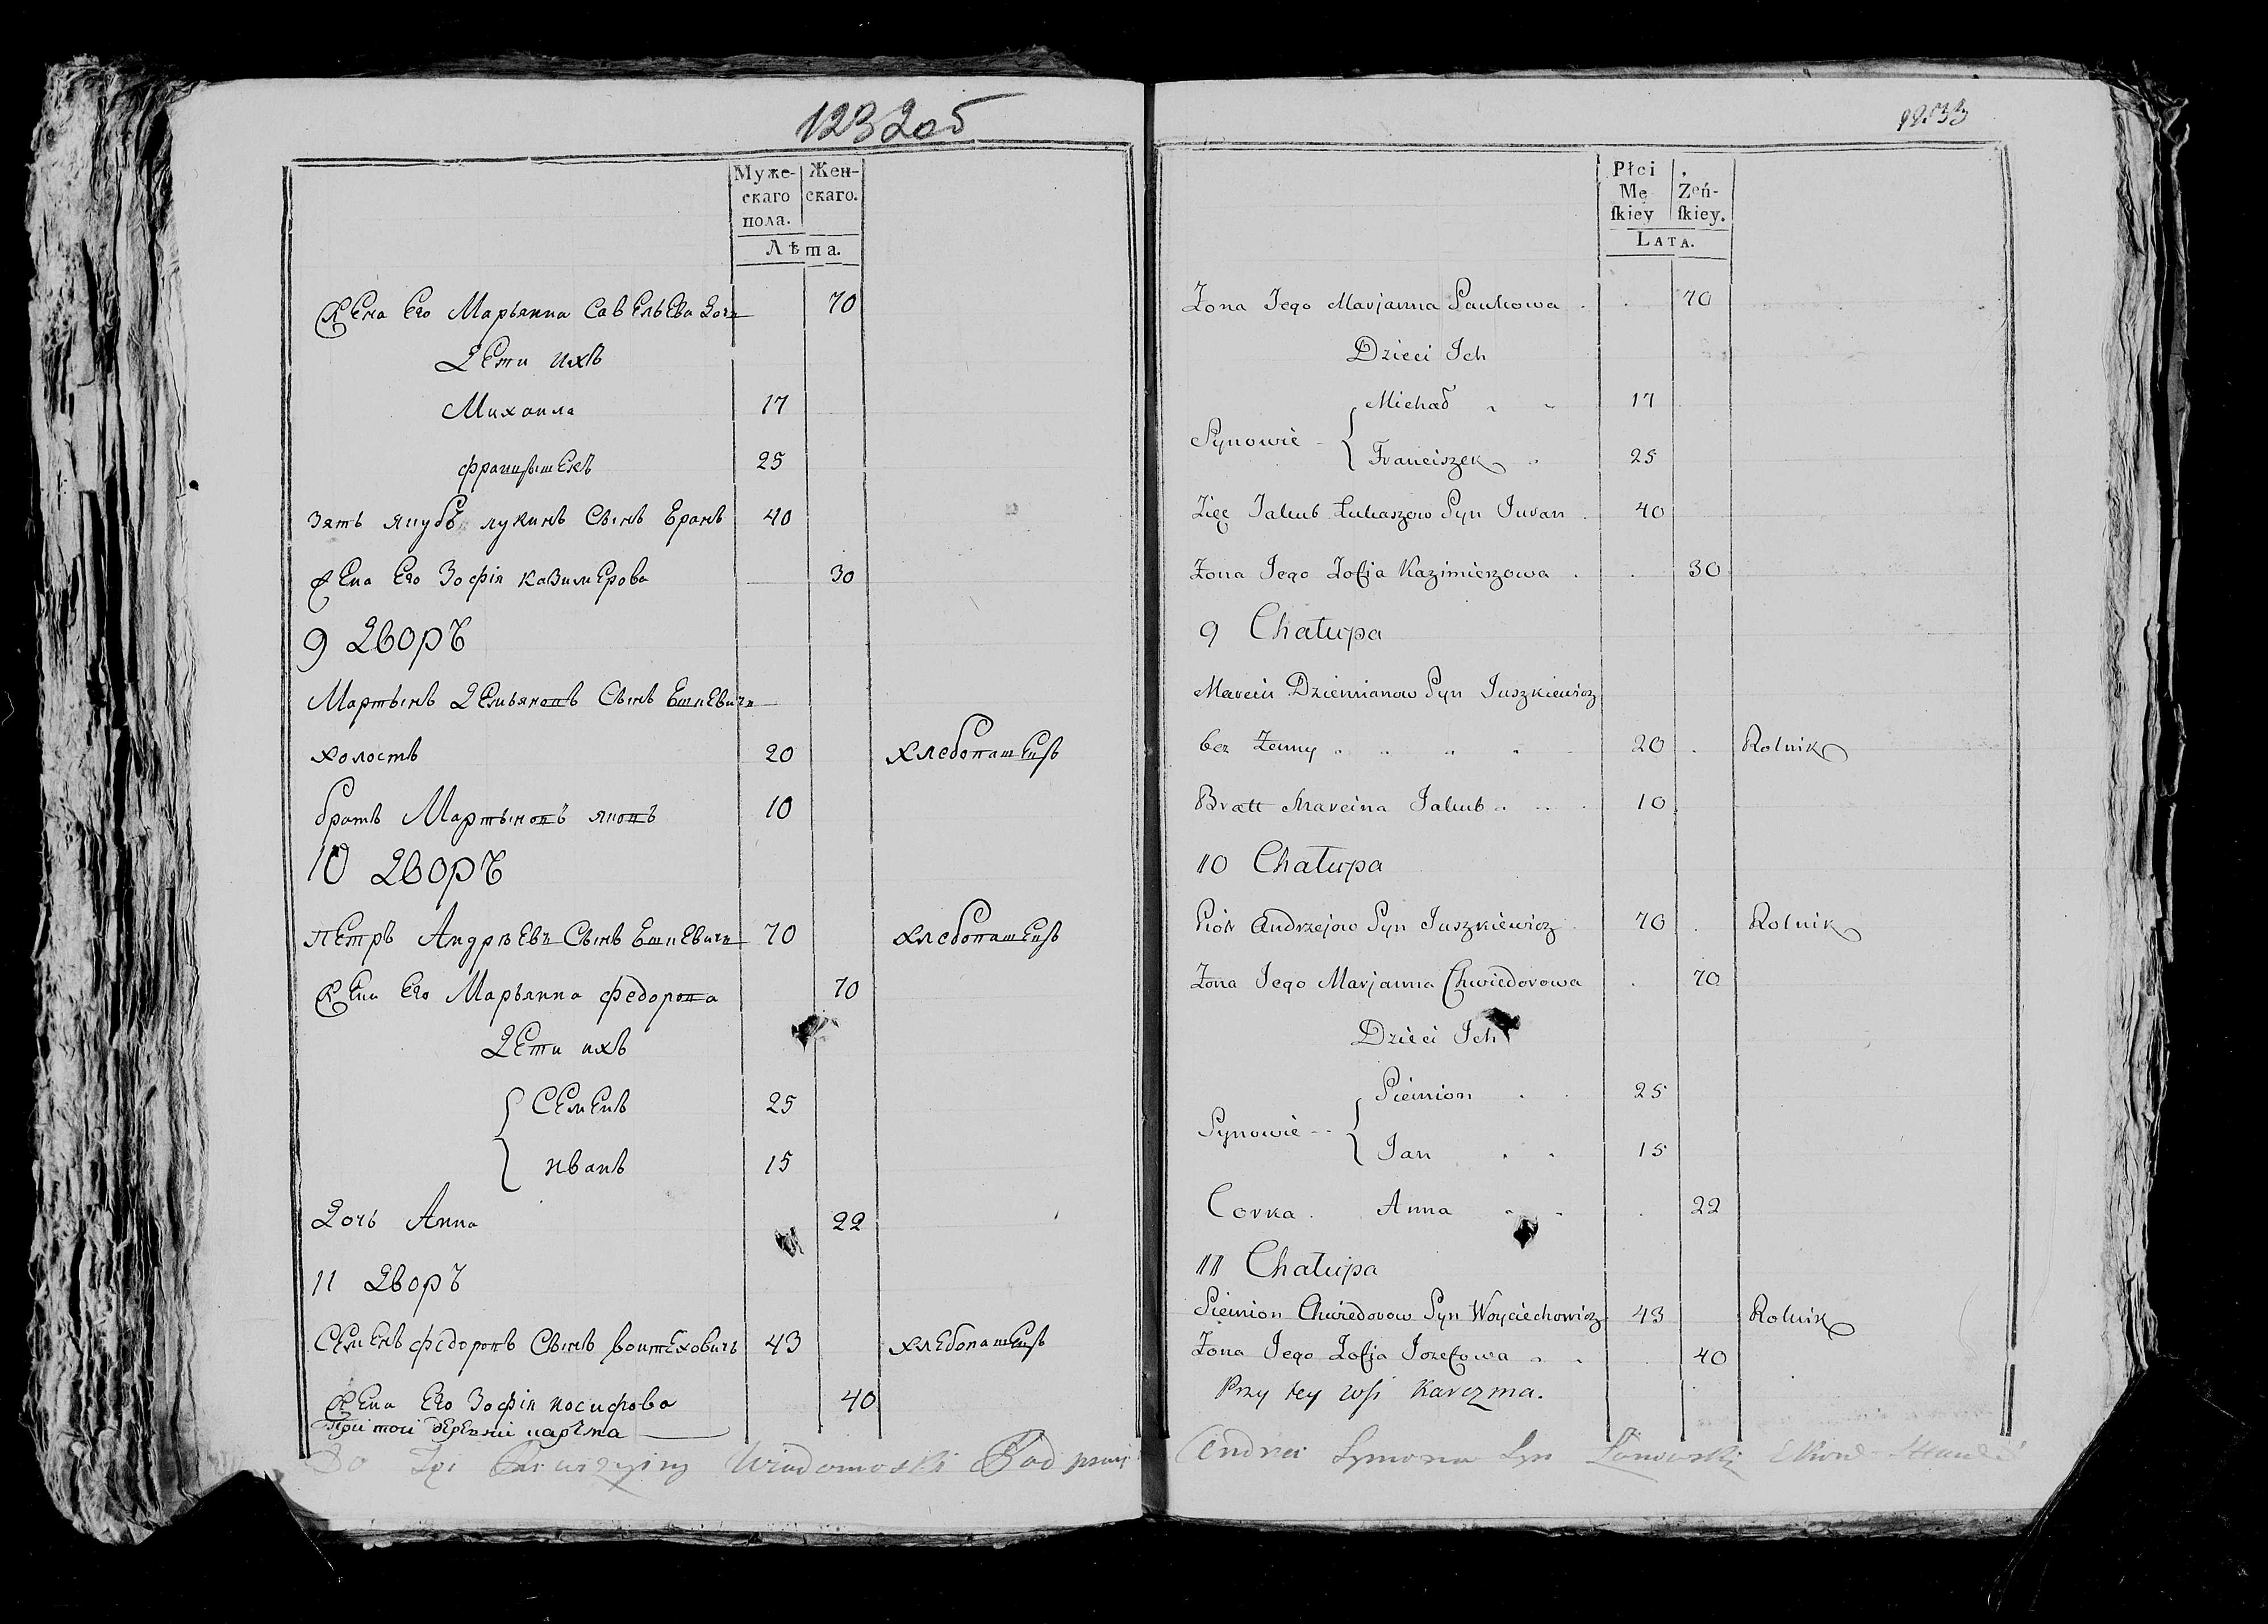 1232об
Муже- Жен-
скаго скаго.
пола.
Лѣта.
Жена Его Марьянна Савельева Дочь 70
Дети ихъ
Михаила 17
францышекъ 25
Зять якубъ лукинъ Сынъ Еранъ 40
Жена Его Зофія казимерова 30
9 Дворъ
Мартынъ Демьяновъ Сынъ
холостъ 20 хлебопашецъ
братъ Мартыновъ 10
10 Дворъ
Петръ Андреевъ Сынъ 70 хлебопашецъ
Жена Его Марьянна федорова 70
Дети ихъ
Семенъ 25
иванъ 15
Дочь Анна 22
11 Дворъ
Семенъ федоровъ Сынъ воитеховичъ 43 хлебопашецъ
Жена Его Зофія иосифова 40
При тои деревни карчма
1233
Płci
Mę Zeń-
ſkiey ſkiey.
LATA.
Zona Jego Marjanna 70
Dzieci Ich
Michał 17
Synowie
Franciszek 25
Zięc Jakub Łukaszow Syn Juran 40
Zona Jego Zofja Kazimierzowa 30
9 Chałupa
Marcin Dziemianow Syn Juszkiewicz
bez Zenny 20 Rolnik
Bratt Marcina Jakub 10
10 Chałupa
Piotr Andrzejow Syn Juszkiewicz 70 Rolnik
Zona Jego Marjanna Chwiedorowa 70
Dzieci Ich
Siemion 25
Synowie
Jan 15
Corka Anna 22
11 Chałupa
Siemion Chwiedorow Syn Woyciechowicz 43 Rolnik
Zona Jego Zofja Jozefowa 40
Przy tey wsi Karczma.
Do Wiadomoski Andrei Symona Syn